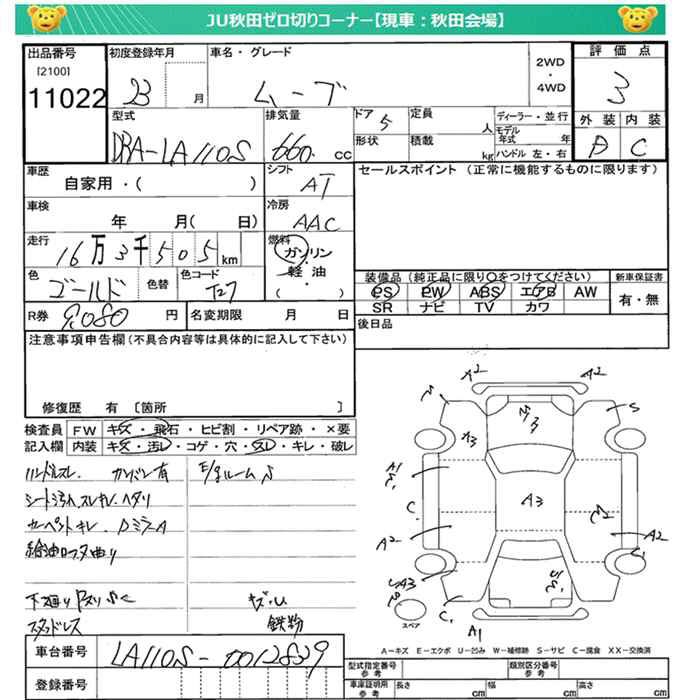 JU秋田ゼロ切りコーナー【現車：秋田会場】
出品番号 初度登録年月 車名・グレード 2WD ・ 4WD 評価点
[2100]
11022 23 月 ムーブ 3
型式 排気量 ドア 5 定員 人 ディーラー・並行 外装 内装
DBA-LA110S 660. cc 形状 積載 kg モデル年式 年 ハンドル 左・右 C
車歴 シフト セールスポイント (正常に機能するものに限ります)
自家用・( ) AT
車検 冷房
年 月( 日) AAC
走行 燃料
16万3千505km ガソリン
・
軽油
・
( )
色 色替 色コード 装備品 (純正品に限り〇をつけてください) 新車保証書
ゴールド T27 PS PW ABS エアB AW 有・無
SR ナビ TV カワ
R券 9,080 円 名変期限 月 日 後日品
注意事項申告欄(不具合内容等は具体的に記入して下さい)
修復歴 有 [箇所 ]
検査員 FW キズ・飛石・ヒビ割・リペア跡・×要
記入欄 内装 キズ・汚レ・コゲ・穴・スレ・キレ・破レ
ハンドルスレ
シート汚れ スレ キレ ヘタリ
カーペットキレ DミラーA
下廻り
スタッドレス 鉄粉
A2 A2
S
A3
A1
A3
C
A2 A2
A1
スペア
A-キズ E-エクボ U-凹み W-補修跡 S-サビ C-腐食 XX-交換済
車台番号 LA110S-0012859
登録番号
型式指定番号 参考 類別区分番号 参考
車庫証明用 参考 長さ cm 幅 cm 高さ cm